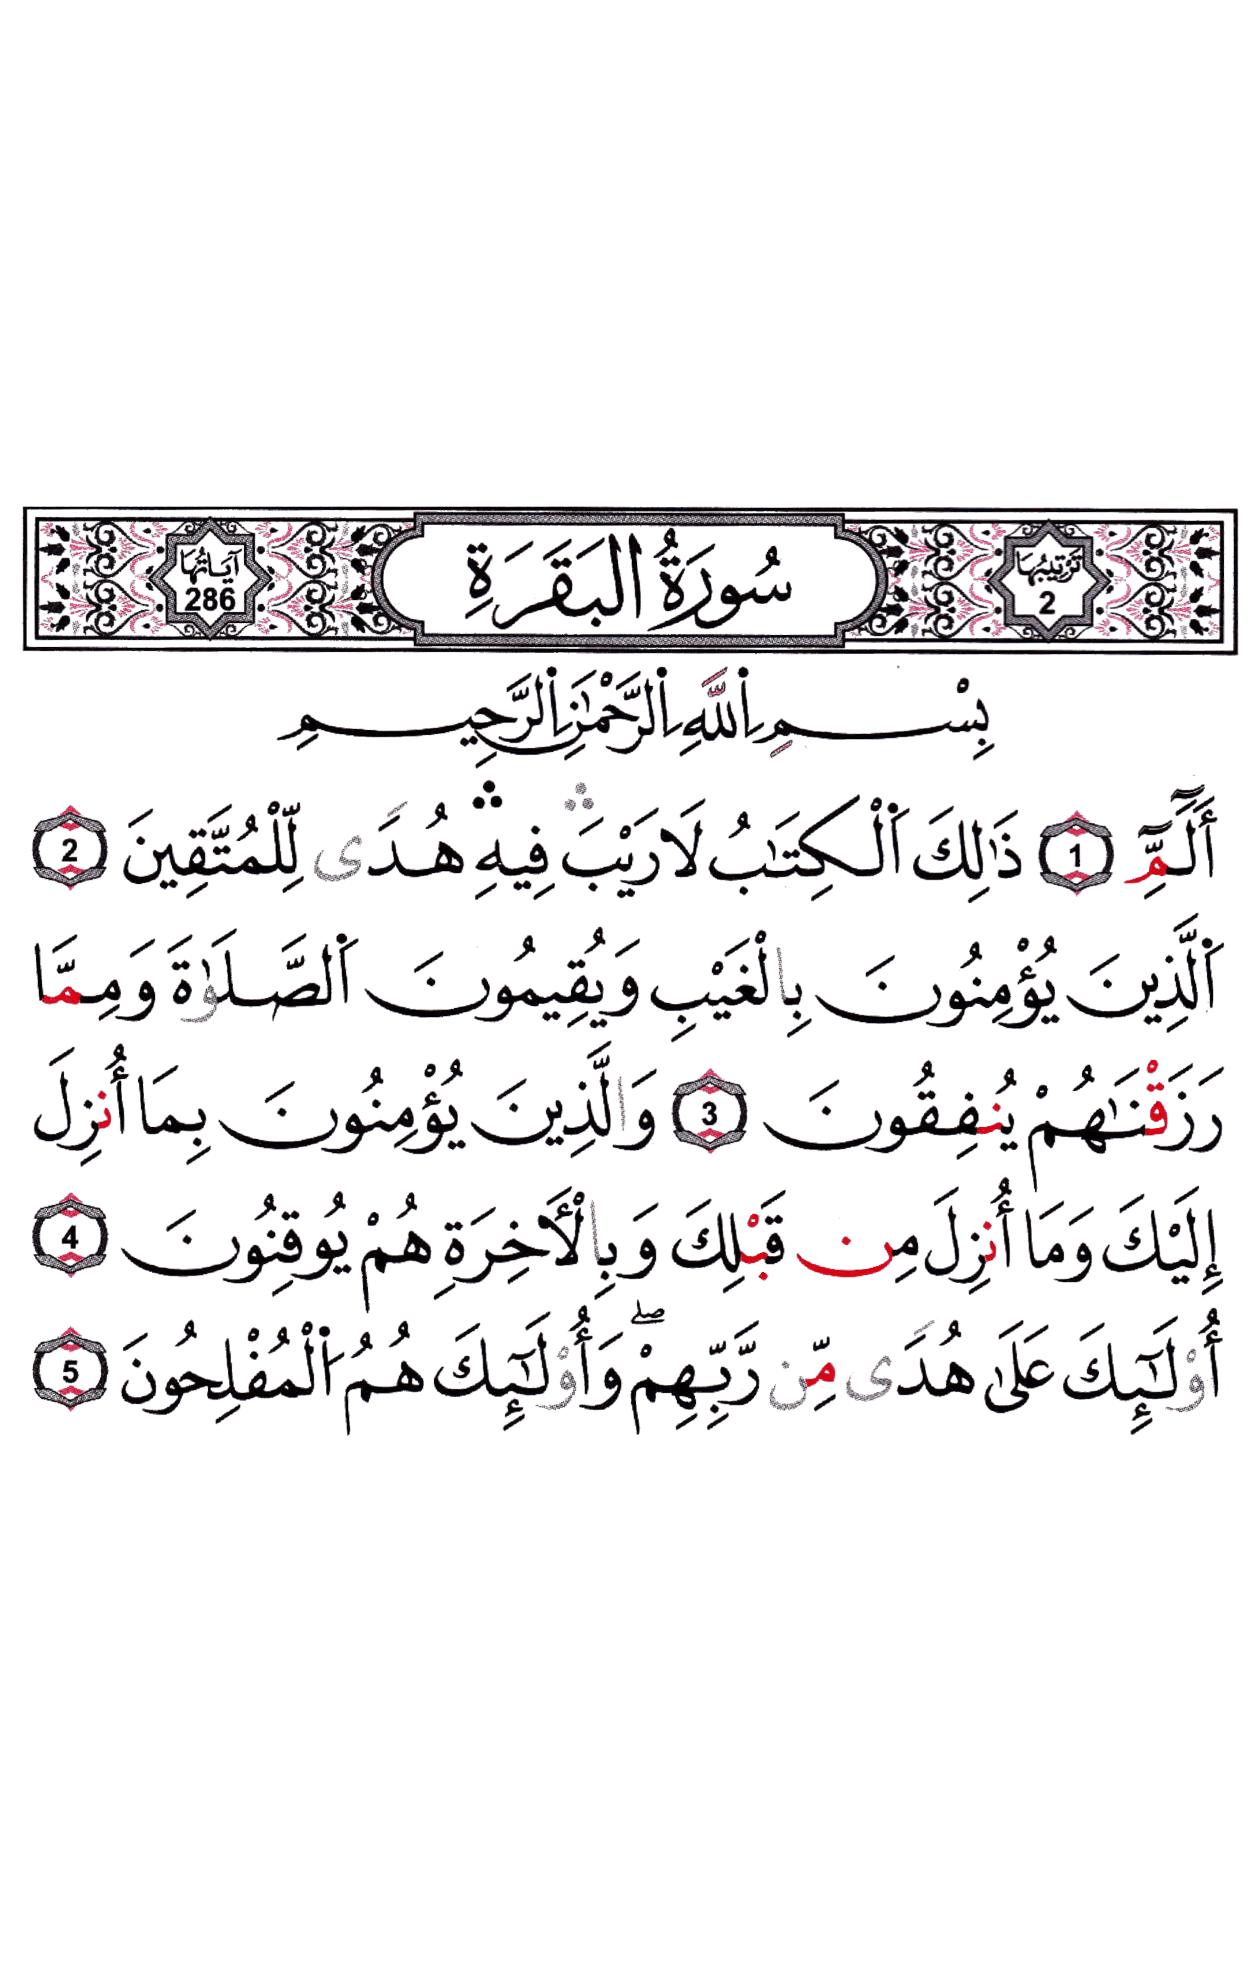 ترتيبها 2
سُورَةُ البَقَرَةِ
آياتها 286
بِسْمِ اِ۬للَّهِ اِ۬لرَّحْمَٰنِ اِ۬لرَّحِيمِ
أَلَٓمِّٓ 1 ذَٰلِكَ اَ۬لْكِتَٰبُ لَا رَيْبَ ۛ فِيهِ ۛ هُدًى لِّلْمُتَّقِينَ 2
اَ۬لَّذِينَ يُؤْمِنُونَ بِالْغَيْبِ وَيُقِيمُونَ اَ۬لصَّلَوٰةَ وَمِمَّا
رَزَقْنَٰهُمْ يُنفِقُونَ 3 وَالَّذِينَ يُؤْمِنُونَ بِمَا أُنزِلَ
إِلَيْكَ وَمَا أُنزِلَ مِن قَبْلِكَ وَبِالْأَخِرَةِ هُمْ يُوقِنُونَ 4
أُوْلَٰٓئِكَ عَلَىٰ هُدًى مِّن رَّبِّهِمْ ۖ وَأُوْلَٰٓئِكَ هُمُ اُ۬لْمُفْلِحُونَ 5